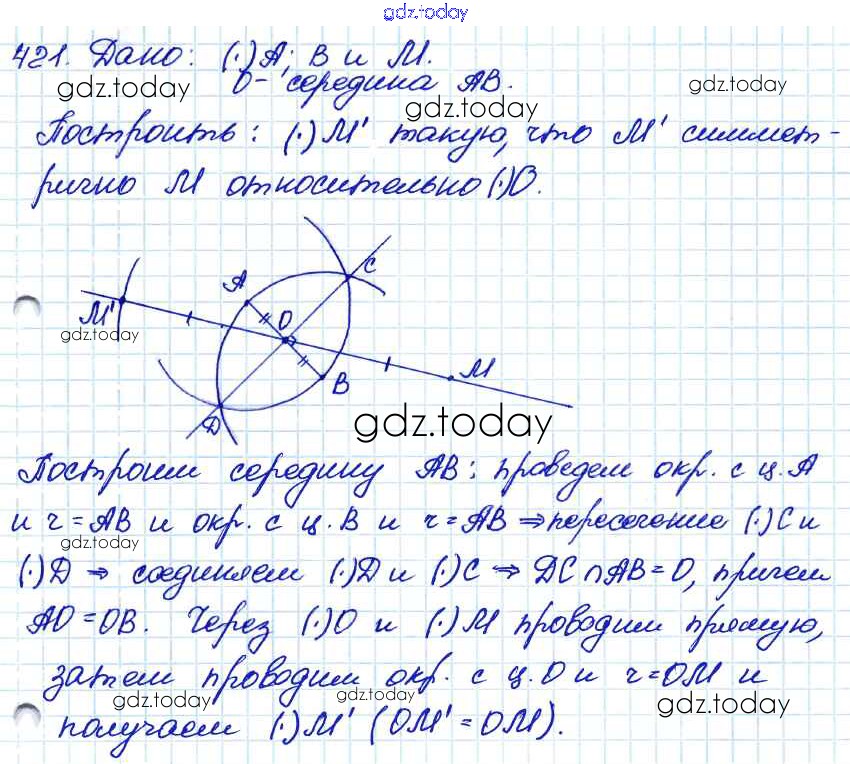 gdz.today
421. Дано: (·)A; B и M.
gdz.today
O - середина AB.
gdz.today
gdz.today
Построить: (·)M' такую, что M' симмет-
рично M относительно (·)O.
C
A
M'
O
gdz.today
gdz.today
M
B
D
gdz.today
Построим середину AB: проведем окр. с ц. A
и r = AB и окр. с ц. B и r = AB ⇒ пересечение (·)C и
gdz.today
(·)D ⇒ соединяем (·)D и (·)C ⇒ DC ∩ AB = O, причем
AO = OB. Через (·)O и (·)M проводим прямую,
затем проводим окр. с ц. O и r = OM и
gdz.today
gdz.today
gdz.today
получаем (·)M' (OM' = OM).